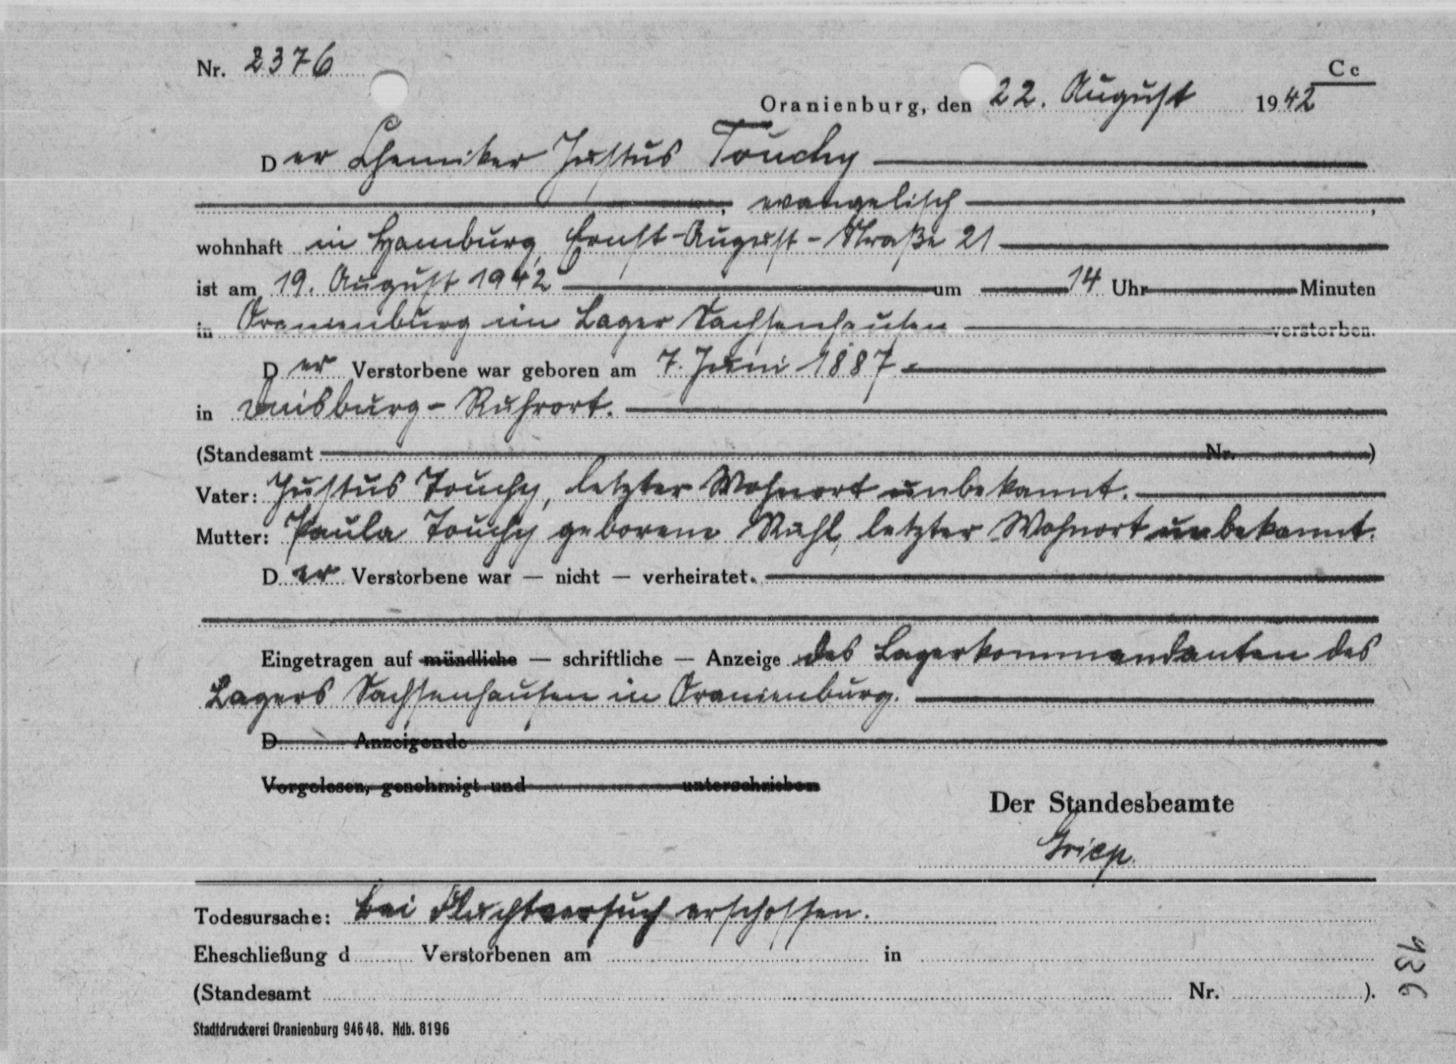 Nr. 2376
Cc
Oranienburg, den 22. August 1942
Der Chemiker Justus Touchy
, evangelisch,
wohnhaft in Hamburg, Ernst-August-Straße 21
ist am 19. August 1942 um 14 Uhr Minuten
in Oranienburg im Lager Sachsenhausen verstorben.
Der Verstorbene war geboren am 7. Juni 1887
in Duisburg-Ruhrort.
(Standesamt Nr. )
Vater: Justus Touchy, letzter Wohnort unbekannt.
Mutter: Paula Touchy geborene Kühl, letzter Wohnort unbekannt.
Der Verstorbene war — nicht — verheiratet.
Eingetragen auf mündliche — schriftliche — Anzeige des Lagerkommandanten des
Lagers Sachsenhausen in Oranienburg.
D Anzeigende
Vorgelesen, genehmigt und unterschrieben
Der Standesbeamte
Griep
Todesursache: Bei Fluchtversuch erschossen.
Eheschließung d Verstorbenen am in
(Standesamt Nr. ).
936
Stadtdruckerei Oranienburg 946 48. Ndb. 8196